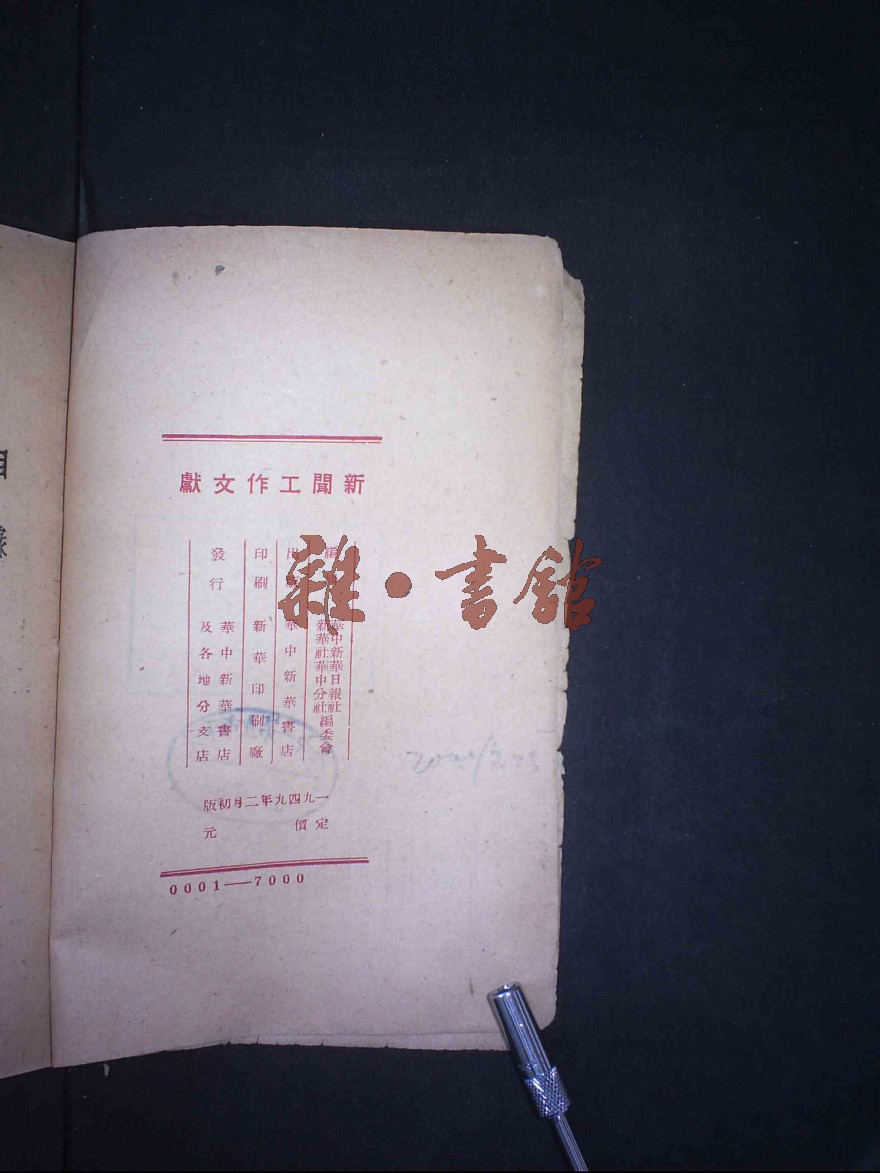 新聞工作文獻
編
華中新華日報社
新華社華中分社編委會
出
華中新華書店
印刷
新華印刷廠
發行
華中新華書店
及各地分支店
一九四九年二月初版
定價 元
0001—7000
雜·書館